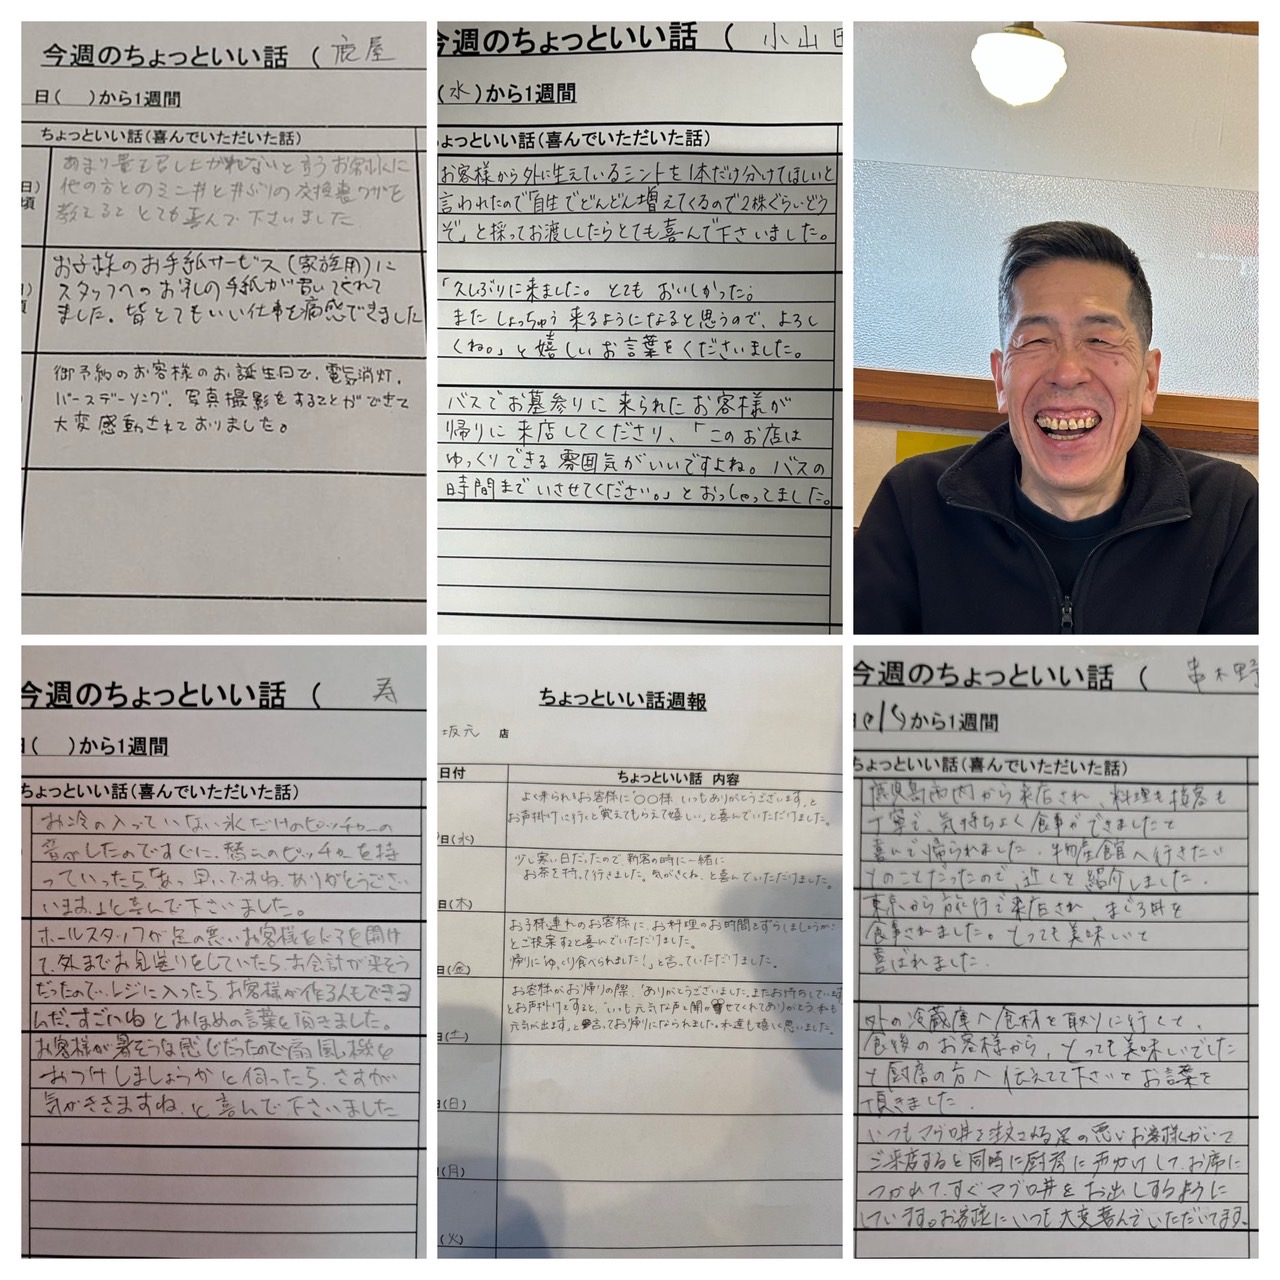 今週のちょっといい話 ( 鹿屋
日( )から1週間
ちょっといい話(喜んでいただいた話)
あまり量を召し上がれないと言うお客様に
他の方とのミニ丼と丼ぶりの交換裏ワザを
教えるととても喜んで下さいました
お子様のお手紙サービス(家族用)に
スタッフへのお礼の手紙が書いてくれて
ました。皆とてもいい仕事を痛感できました
御予約のお客様のお誕生日で、電気消灯、
バースデーソング、写真撮影をすることができて
大変感動されておりました。
今週のちょっといい話 ( 小山田
(水)から1週間
ちょっといい話(喜んでいただいた話)
お客様から外に生えているミントを1本だけ分けてほしいと
言われたので「自生でどんどん増えてくるので2株ぐらいどう
ぞ」と採ってお渡ししたらとても喜んで下さいました。
「久しぶりに来ました。とても おいしかった。
また しょっちゅう 来るようになると思うので、よろし
くね。」と嬉しいお言葉をくださいました。
バスでお墓参りに来られたお客様が
帰りに来店してくださり、「このお店は
ゆっくりできる雰囲気がいいですよね。バスの
時間までいさせてください。」とおっしゃってました。
今週のちょっといい話 ( 寿
日( )から1週間
ちょっといい話(喜んでいただいた話)
お冷の入っていない氷だけのピッチャーの
音がしたのですぐに、替えのピッチャーを持
っていったら「あっ早いですね、ありがとうござい
います。」と喜んで下さいました。
ホールスタッフが足の悪いお客様をドアを開け
て、外までお見送りをしていたら、お会計が来そう
だったので、レジに入ったら、お客様が作る人もできる
んだ、すごいねとおほめの言葉を頂きました。
お客様が暑そうな感じだったので扇風機を
おつけしましょうかと伺ったら、さすが
気がききますね、と喜んで下さいました
ちょっといい話週報
坂元 店
日付
ちょっといい話 内容
よく来られるお客様に"○○様 いつもありがとうございます。と
お声掛けに行くと覚えてもらえて嬉しい」と喜んでいただけました。
日(水)
少し寒い日だったので、新客の時に一緒に
お茶を持って行きました。気がきくね、と喜んでいただけました。
日(木)
お子様連れのお客様に、お料理のお時間をずらしましょうか?
とご提案すると喜んでいただけました。
帰りにゆっくり食べられました!」と言っていただけました。
日(金)
お客様がお帰りの際、「ありがとうございました。またお待ちしています
とお声掛けをすると、「いつも元気な声を聞かせてくれてありがとう、私も
元気が出ます」と言ってお帰りになられました。私達も嬉しく思いました。
日(土)
(日)
(月)
(火)
今週のちょっといい話 ( 串木野
から1週間
ちょっといい話(喜んでいただいた話)
鹿児島市内から来店され、料理も接客も
丁寧で、気持ちよく食事ができましたと
喜んで帰られました。物産館へ行きたい
とのことだったので、近くを紹介しました。
東京から旅行で来店され、まぐろ丼を
食事されました。とっても美味しいと
喜ばれました。
外の冷蔵庫へ食材を取りに行くと、
食後のお客様から、とっても美味しいでした
と厨房の方へ伝えてて下さいとお言葉を
頂きました。
いつもマグロ丼を注文される足の悪いお客様がいて
ご来店すると同時に厨房に声かけして、お席に
つかれて、すぐマグロ丼をお出しするように
しています。お客様にいつも大変喜んでいただいてます。